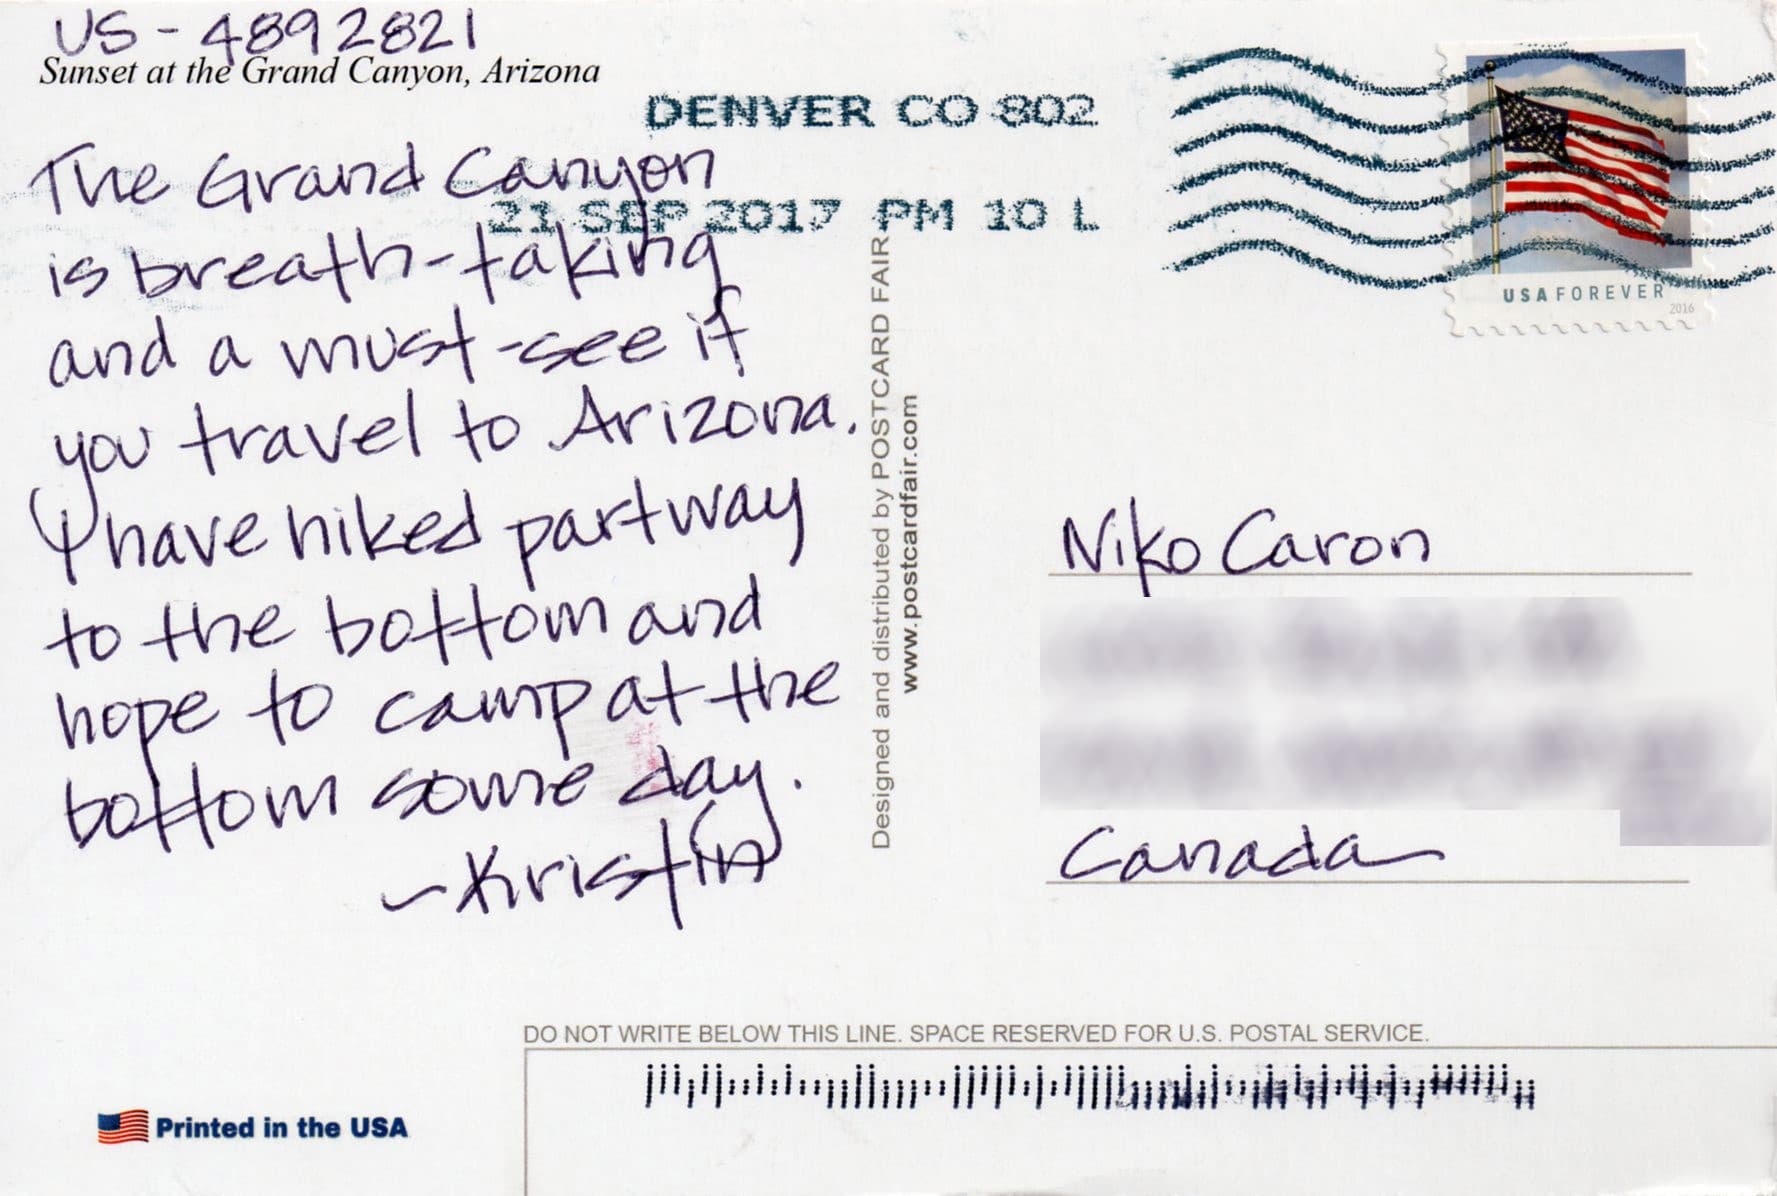 US - 4892821
Sunset at the Grand Canyon, Arizona
DENVER CO 802
21 SEP 2017 PM 10 L
USA FOREVER
2016
The Grand Canyon
is breath-taking
and a must-see if
you travel to Arizona.
I have hiked partway
to the bottom and
hope to camp at the
bottom some day.
~Kristin
Designed and distributed by POSTCARD FAIR
www.postcardfair.com
Niko Caron
Canada
DO NOT WRITE BELOW THIS LINE. SPACE RESERVED FOR U.S. POSTAL SERVICE.
Printed in the USA